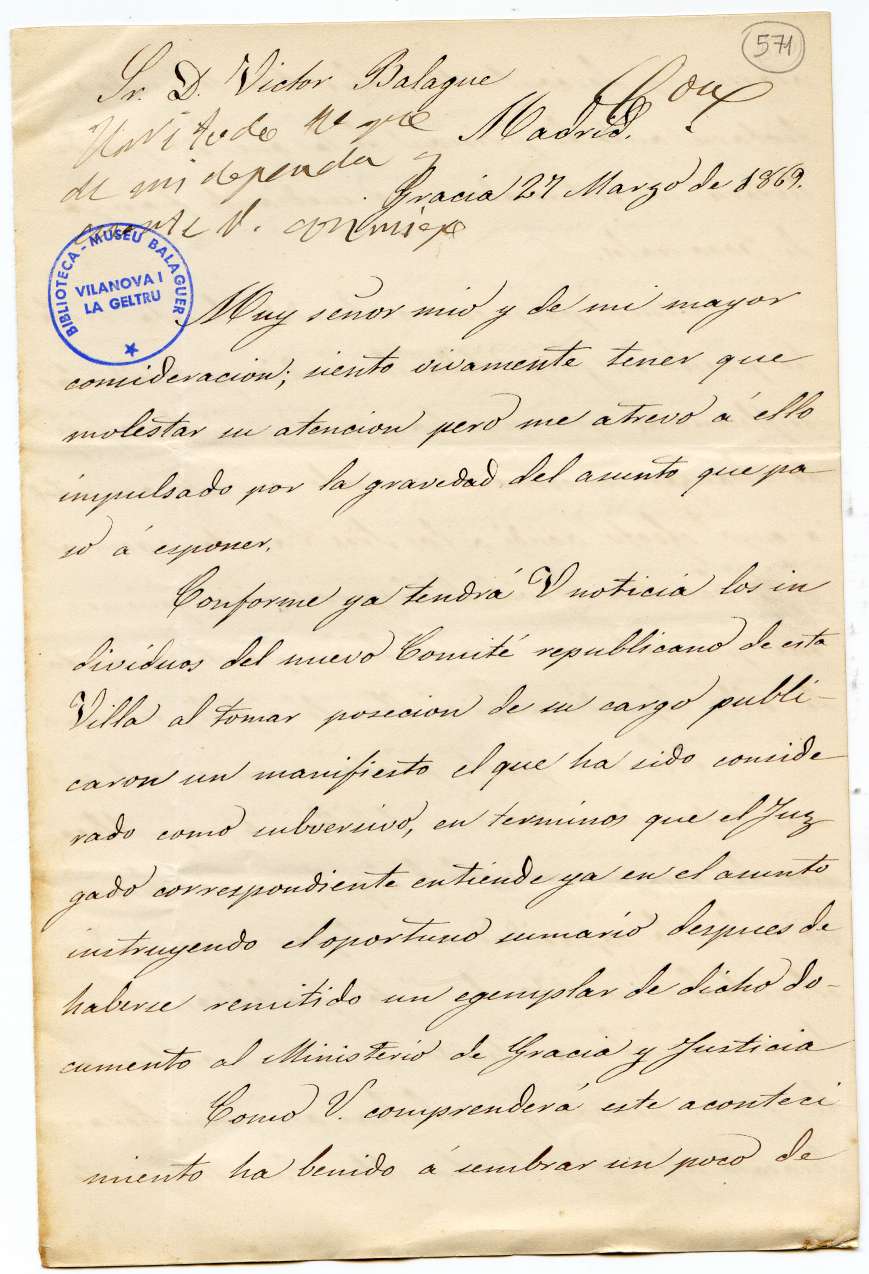 571
Sr. D. Victor Balague
Madrid.
de mi dependa y
Gracia 27 Marzo de 1869.
cuente V. con mi
BIBLIOTECA - MUSEU BALAGUER
VILANOVA I
LA GELTRU
Muy señor mio y de mi mayor
consideracion; siento vivamente tener que
molestar su atencion pero me atrevo á ello
impulsado por la gravedad del asunto que pa
so á esponer.
Conforme ya tendrá V noticia los in
dividuos del nuevo Comité republicano de esta
Villa al tomar posecion de su cargo publi-
caron un manifiesto el que ha sido conside
rado como subversivo, en terminos que el Juz
gado correspondiente entiende ya en el asunto
instruyendo el oportuno sumario despues de
haberse remitido un egemplar de dicho do-
cumento al Ministerio de Gracia y Justicia
Como V. comprenderá este aconteci
miento ha benido á sembrar un poco de